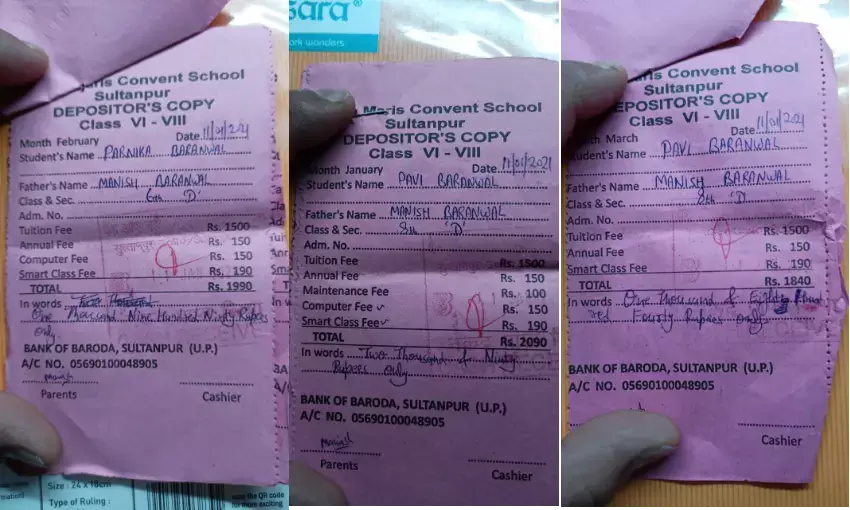 aris Convent School
Sultanpur
DEPOSITOR'S COPY
Class VI - VIII
Month February Date 11/01/2021
Student's Name PARNIKA BARANWAL
Father's Name MANISH BARANWAL
Class & Sec. 6th 'D'
Adm. No.
Tuition Fee Rs. 1500
Annual Fee Rs. 150
Computer Fee Rs. 150
Smart Class Fee Rs. 190
TOTAL Rs. 1990
In words
One Thousand Nine Hundred Ninty Rupees
only
BANK OF BARODA, SULTANPUR (U.P.)
A/C NO. 05690100048905
Manish
Parents Cashier
Size : 24 x 18cm
Type of Ruling :
scan the QR code
for more exciting
sara®
ork wonders
Maris Convent School
Sultanpur
DEPOSITOR'S COPY
Class VI - VIII
Month January Date 11/01/2021
Student's Name PAVI BARANWAL
Father's Name MANISH BARANWAL
Class & Sec. 8th 'D'
Adm. No.
Tuition Fee Rs. 1500
Annual Fee Rs. 150
Maintenance Fee Rs. 100
Computer Fee Rs. 150
Smart Class Fee Rs. 190
TOTAL Rs. 2090
In words Two Thousand & Ninty
Rupees only
BANK OF BARODA, SULTANPUR (U.P.)
A/C NO. 05690100048905
Manish
Parents Cashier
aris Convent School
Sultanpur
DEPOSITOR'S COPY
Class VI - VIII
th March Date 11/01/2021
Student's Name PAVI BARANWAL
Father's Name MANISH BARANWAL
Class & Sec. 8th 'D'
Adm. No.
Tuition Fee Rs. 1500
Annual Fee Rs. 150
Smart Class Fee Rs. 190
TOTAL Rs. 1840
In words One Thousand & Eight Hund
red Fourty Rupees only
BANK OF BARODA, SULTANPUR (U.P.)
A/C NO. 05690100048905
Cashier